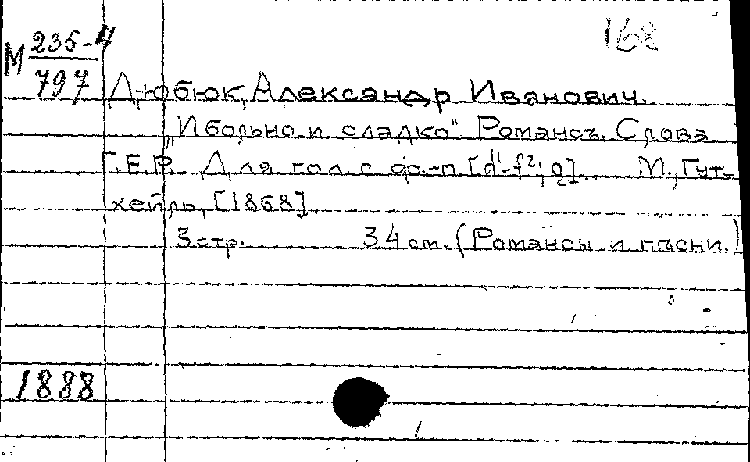 168
М 235-4
797
Дюбюк, Александр Иванович.
„И больно и сладко“. Романсъ. Слова
Г.Е.Р. Для гол. с ф.-п. [d¹-f²; g]. М., Гут-
хейль, [1868].
3 стр. 34 см. (Романсы и пѣсни.)
1888